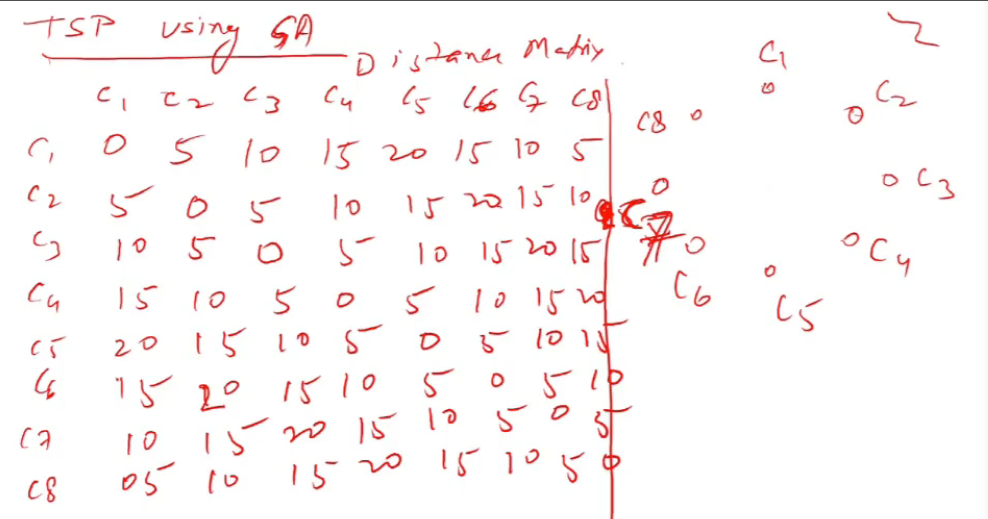 TSP using GA
Distance Matrix
C1 C2 C3 C4 C5 C6 C7 C8
C1 0 5 10 15 20 15 10 5
C2 5 0 5 10 15 20 15 10
C3 10 5 0 5 10 15 20 15
C4 15 10 5 0 5 10 15 20
C5 20 15 10 5 0 5 10 15
C6 15 20 15 10 5 0 5 10
C7 10 15 20 15 10 5 0 5
C8 05 10 15 20 15 10 5 0
C1
C2
C8
C3
C4
C6
C5